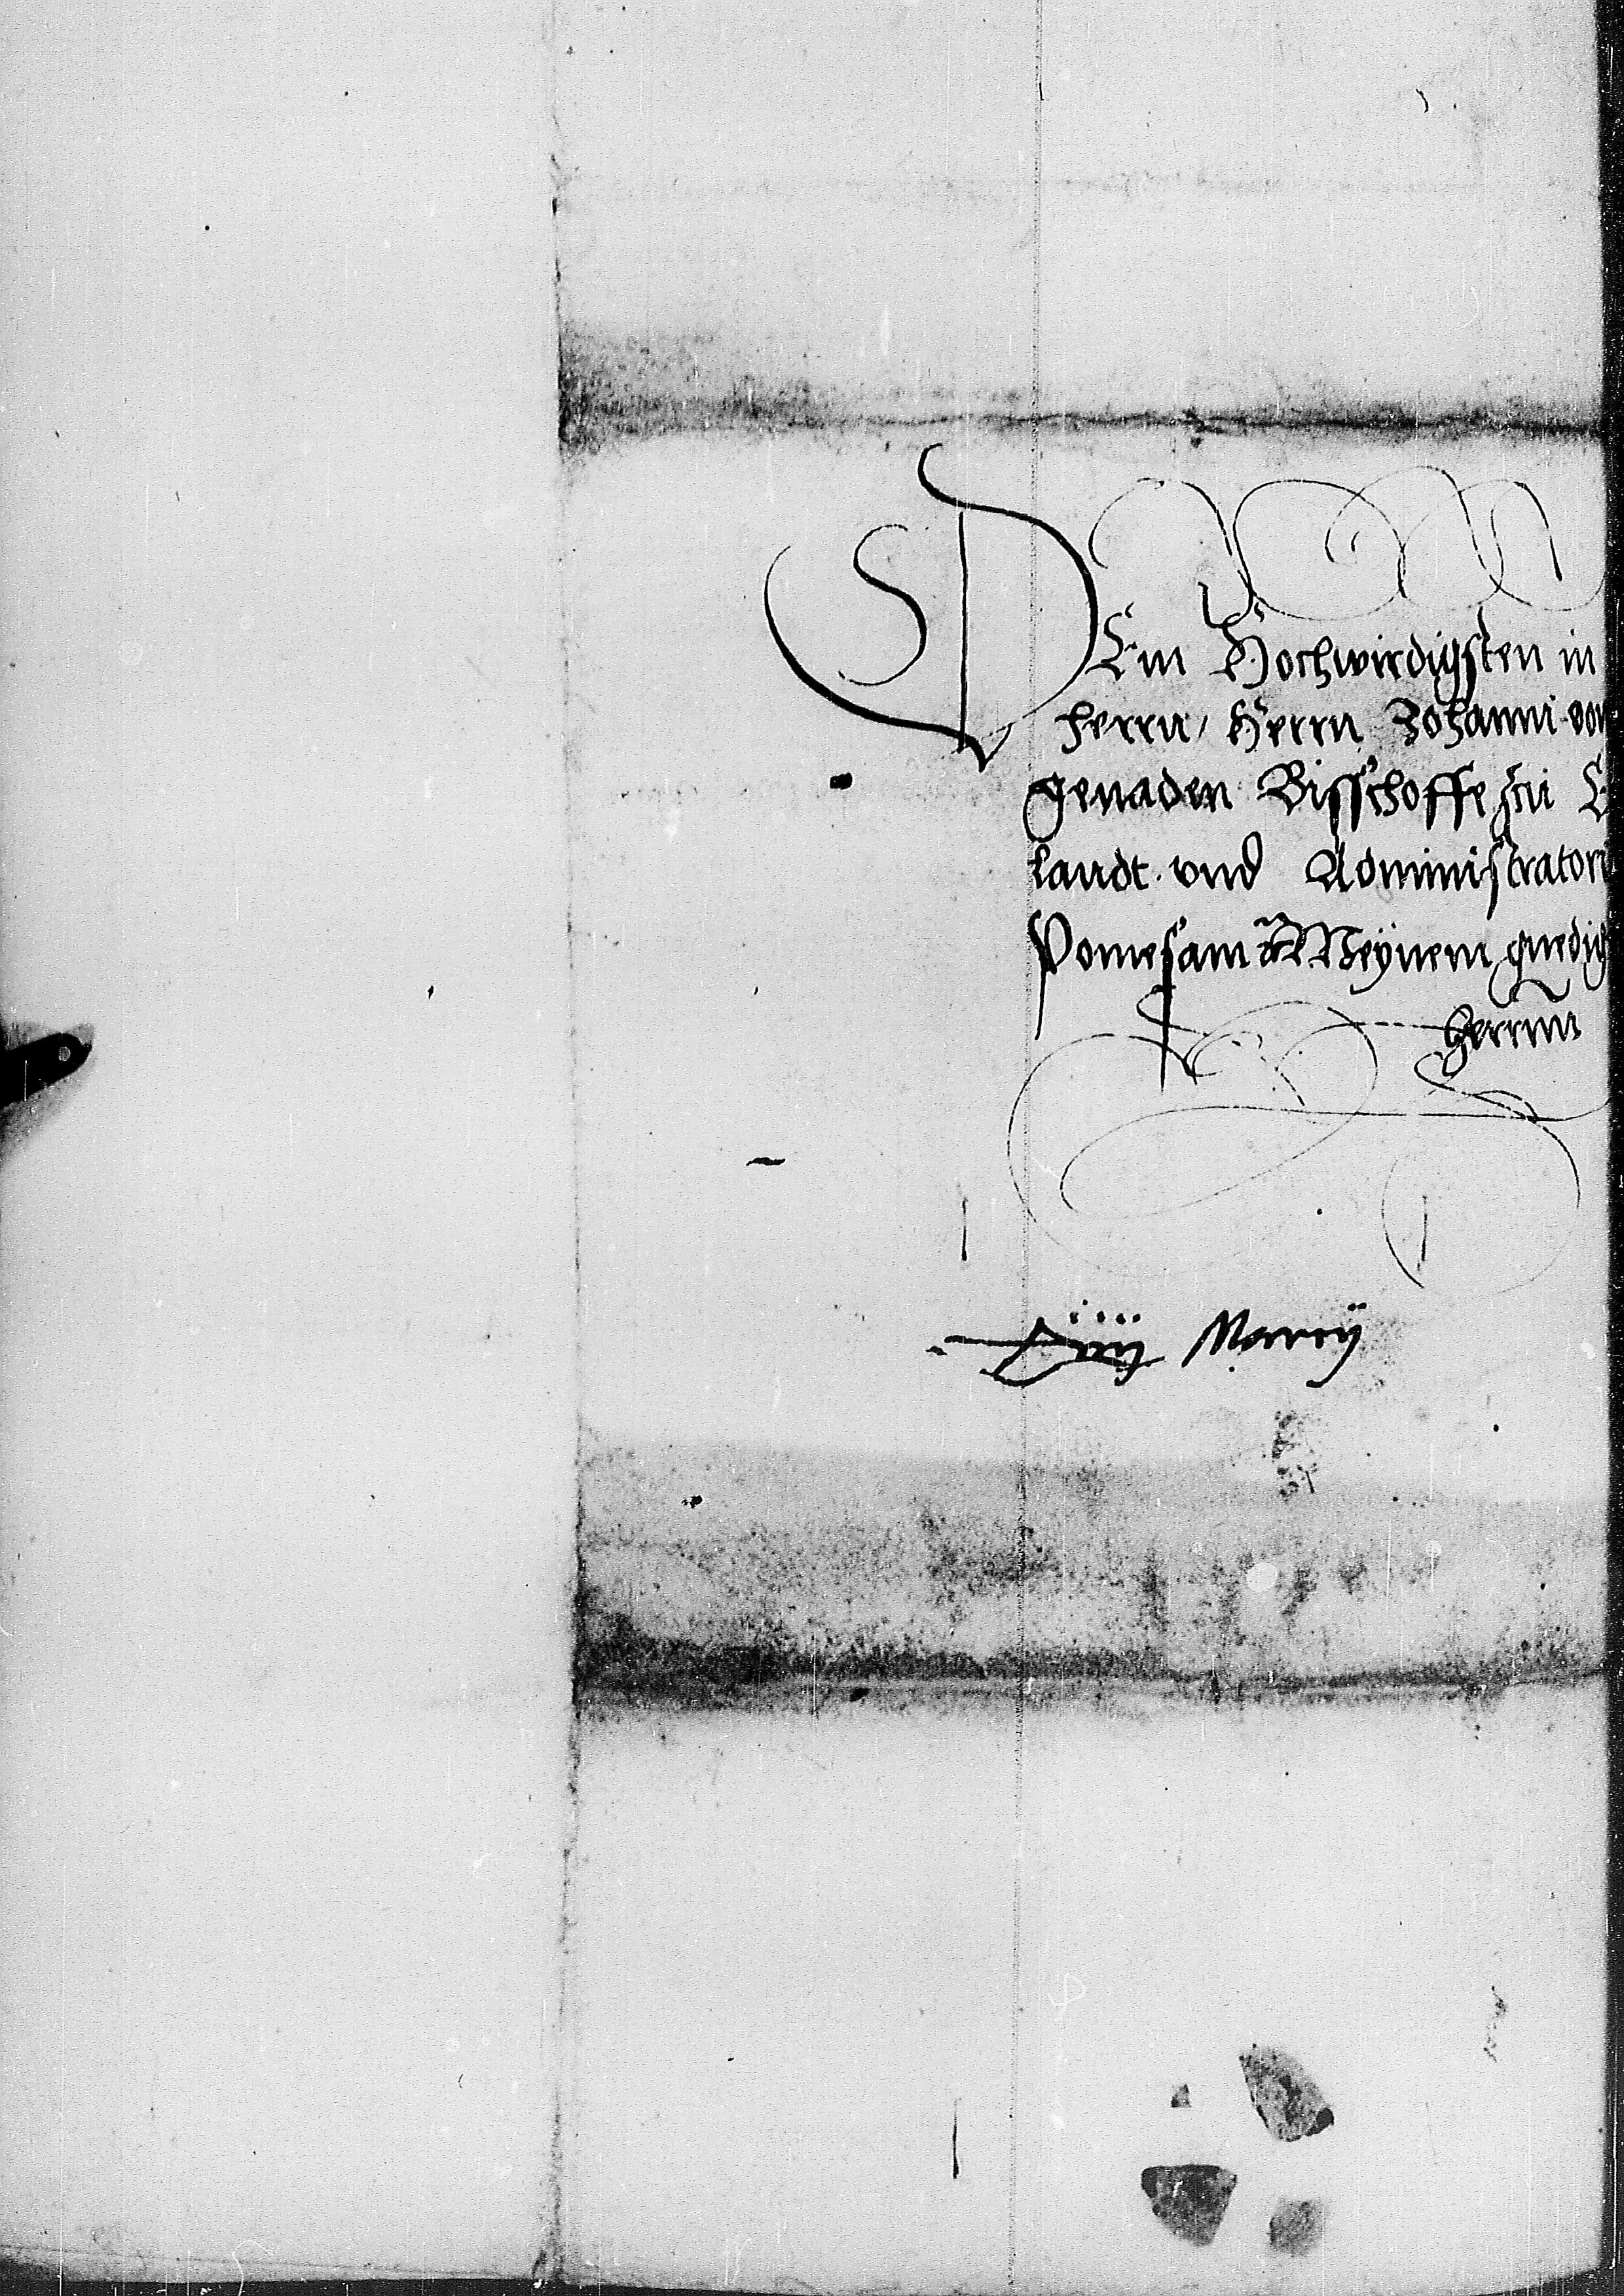 DEm Hochwirdigsten in
herrn / Herrn Johanni von
genaden Bisschoffe zu
landt vnd Administratori
Pomesam Meynem gnedig
herrnn
Marcÿ